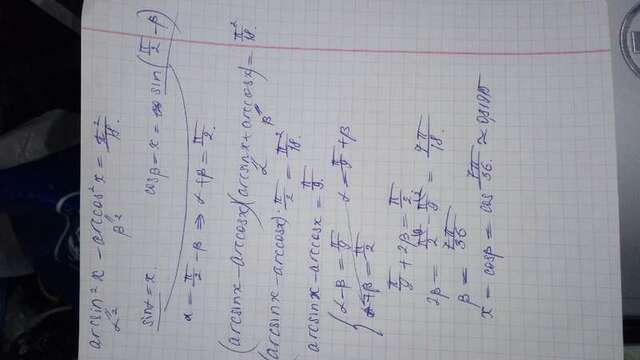 arcsin²x − arccos²x = π²/18.
α² β²
sinα = x. cosβ = x = sin(π/2 − β)
α = π/2 − β ⇒ α + β = π/2.
(arcsinx − arccosx)(arcsinx + arccosx) = π²/18.
α β
(arcsinx − arccosx)·π/2 = π²/18.
arcsinx − arccosx = π/9.
{ α − β = π/9 α = π/9 + β
α + β = π/2
π/9 + 2β = π/2
2β = π/2 − π/9 = 7π/18.
β = 7π/36
x = cosβ = cos 7π/36 ≈